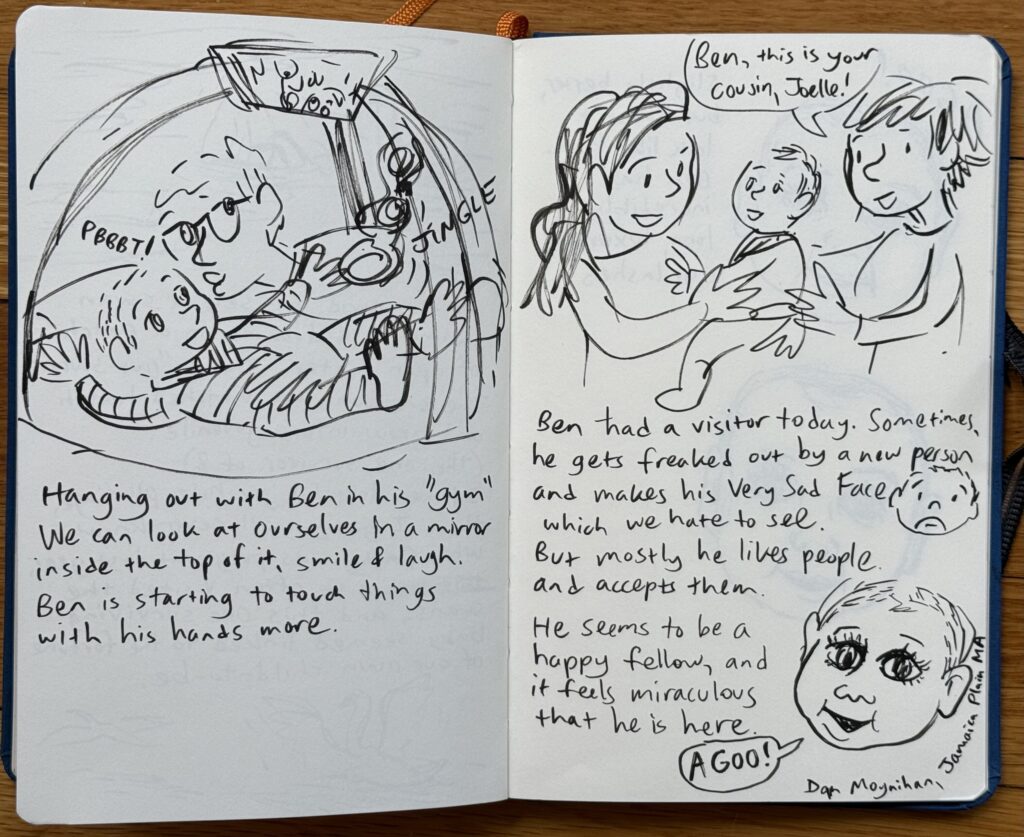 PBBBT!
JINGLE
Hanging out with Ben in his "gym"
We can look at ourselves in a mirror
inside the top of it, smile & laugh.
Ben is starting to touch things
with his hands more.
Ben, this is your
cousin, Joelle!
Ben had a visitor today. Sometimes,
he gets freaked out by a new person
and makes his Very Sad Face
which we hate to see.
But mostly he likes people
and accepts them.
He seems to be a
happy fellow, and
it feels miraculous
that he is here.
A GOO!
Dan Moynihan, Jamaica Plain MA